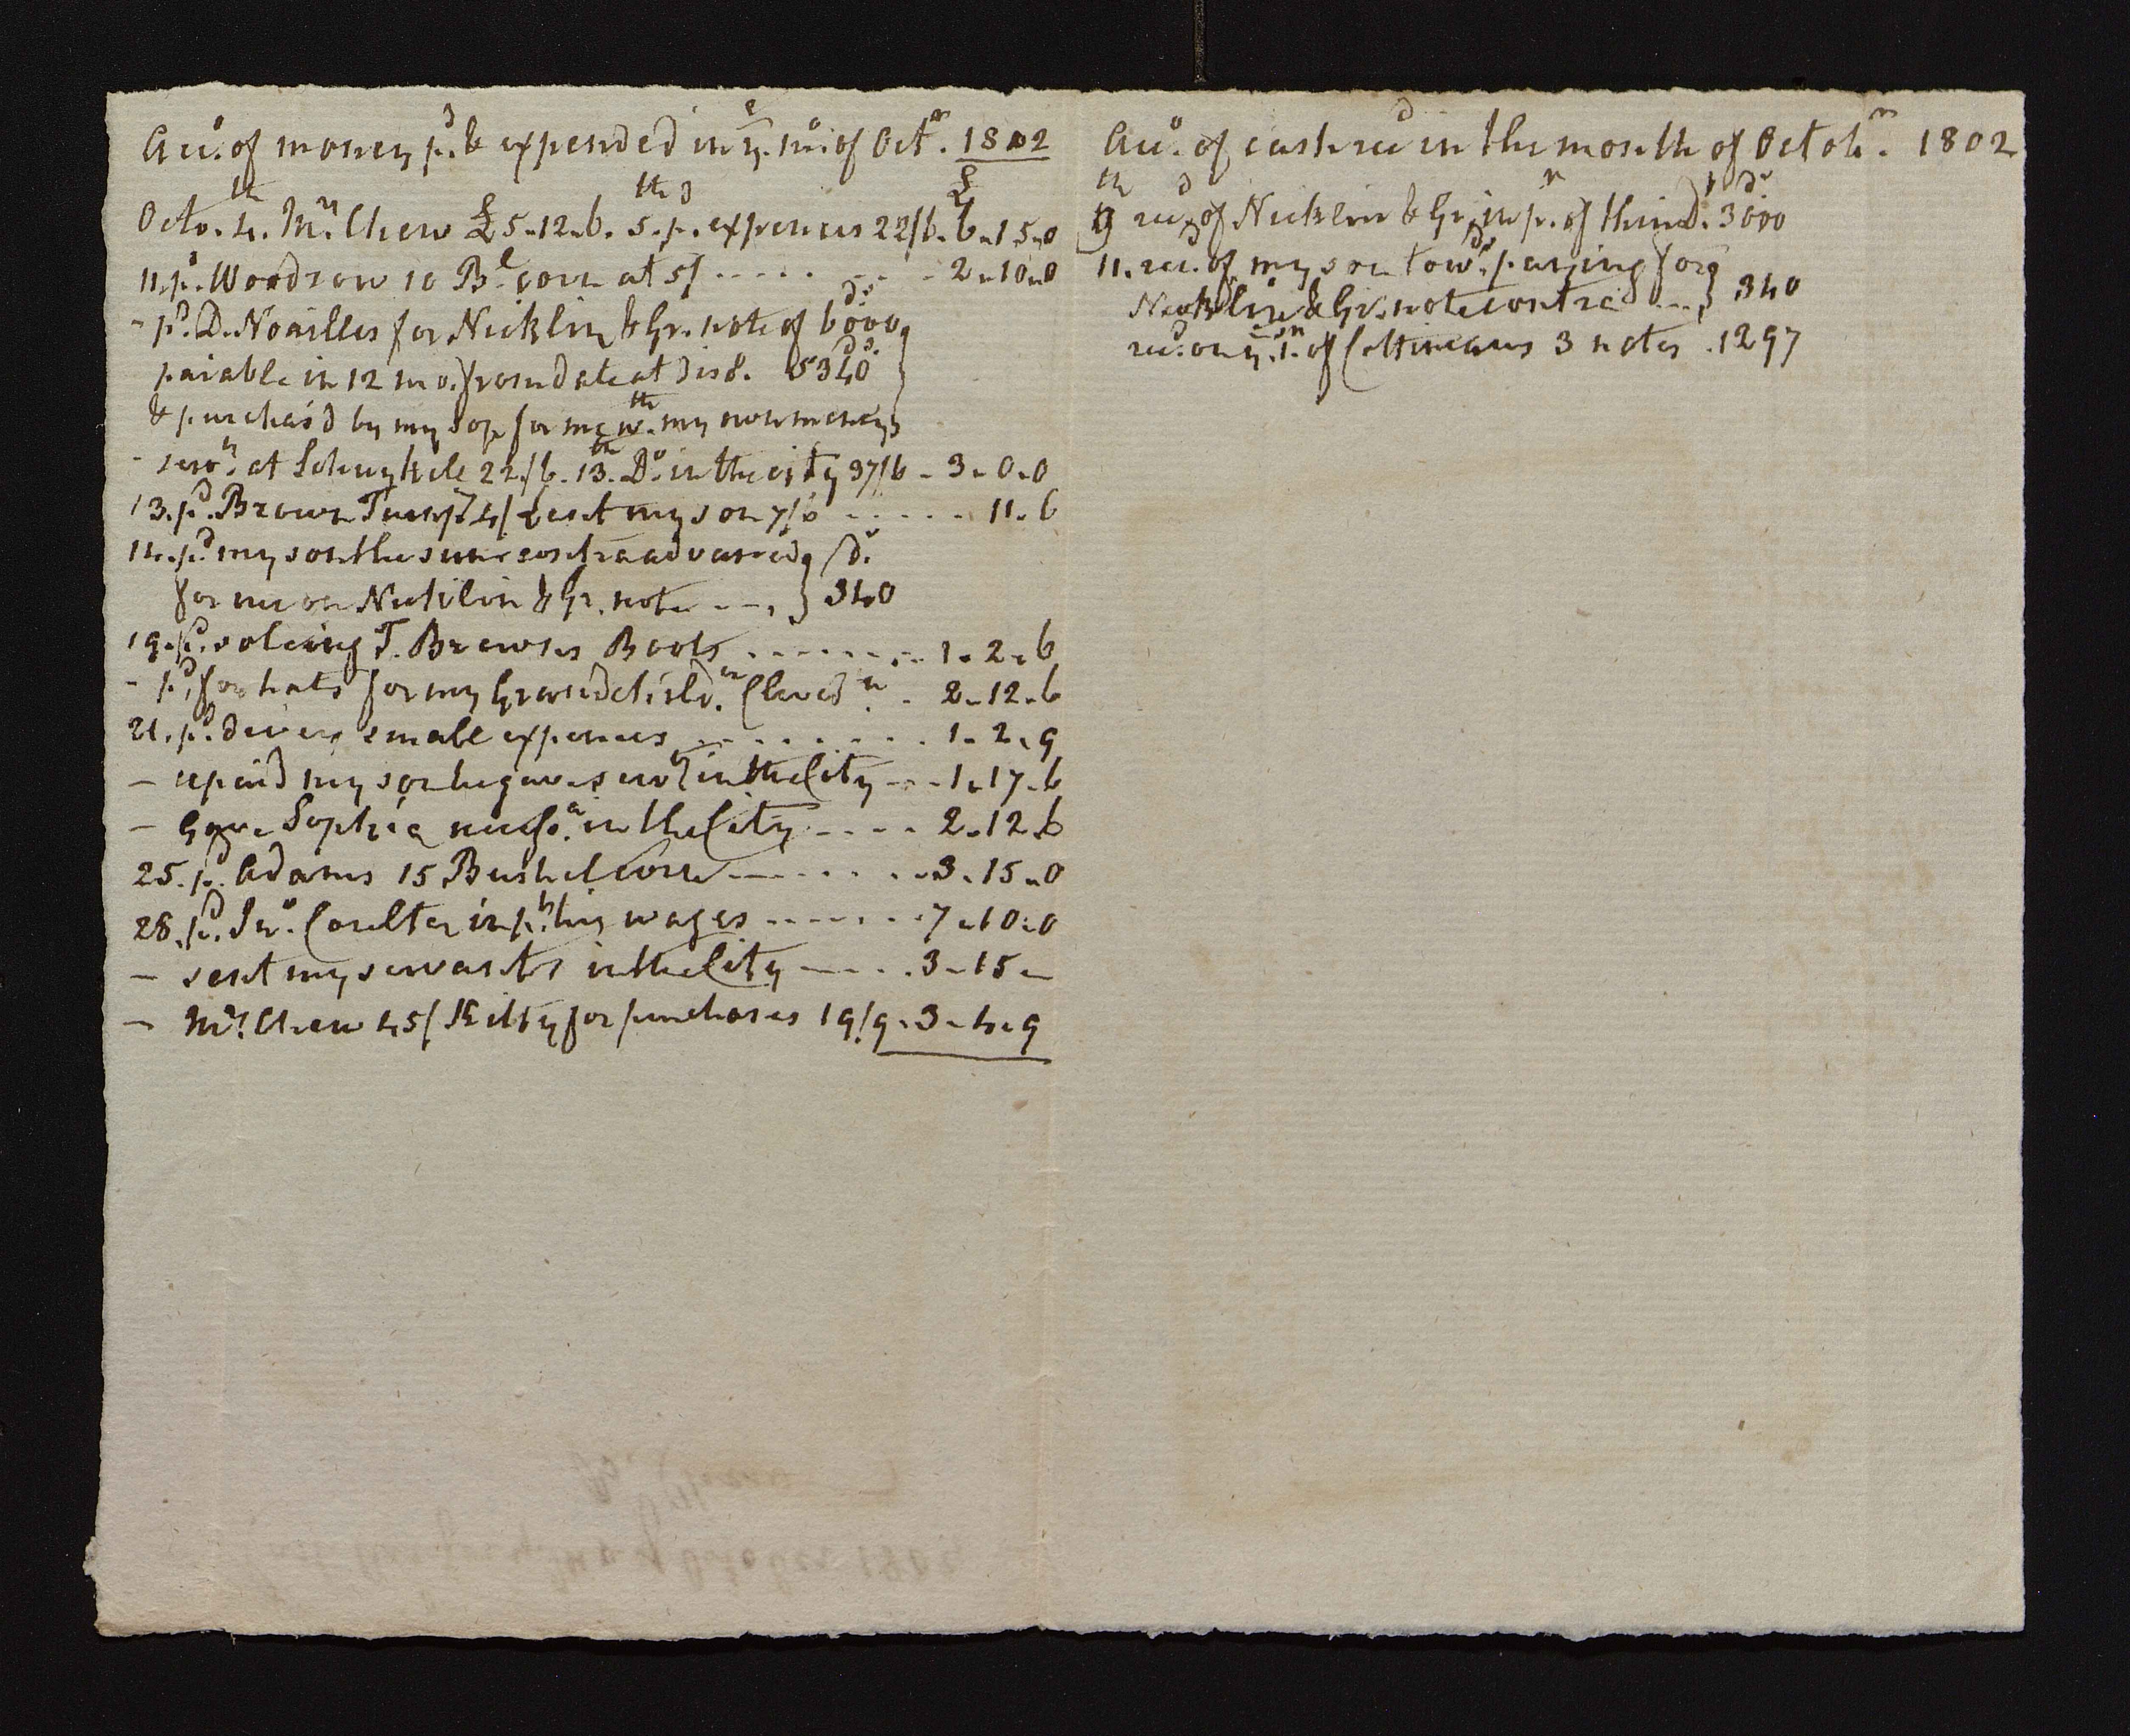 Acco. of money pd. & expended in ye. mo. of Octr. 1802
£
Octo. 4th. Mrs. Chew £5-12-6. 5th. pd. expences 22/6. 6-15-0
11. pd. Woodrow 10 Bl. corn at 5/ ..... 2-10-0
- pd. D. Noailles for Nicklin & Gr. note of 6000 drs.
paiable in 12 mo. from date at dis 8. 5340 ds.
& purchas'd by my son for me wth. my own money
- serv.ts at Schuylkile 22/6. 13th. Do. in the city 37/6 - 3-0-0
13. pd. Brown 4/ sent my son 7/6 ..... 11-6
14. pd. my son the sum contra advanced } drs.
for me on Nicklin & Gr. note --- } 340
19. pd. soleing T. Browns Boots ....... 1-2-6
- pd. for hats for my Grandchildn. Cleved. n. . 2-12-6
21. pd. divers small expences ........ 1-2-9
- repaid my son he gave servts. in the City --- 1-17-6
- Gave Sophia necessa. in the City ---- 2-12-6
25. pd. Adams 15 Bushel corn ------- 3-15-0
28. pd. Jno. Coulter in pt. his wages ------ 7-10-0
- sent my servants in the City ---- 3-15-
- Mrs. Chew 45/ Kitty for purchases 19/9. 3-4-9
Acco. of cash recd in the month of Octobr. 1802
9th recd. of Nicklin & Gr. in pt. of thin D. 3000 drs
11. recd. of my son towds. paying for }
Nicklin & Gr. note contra --- } 340
recd. on ye. of Cottineaus 3 notes . 1297